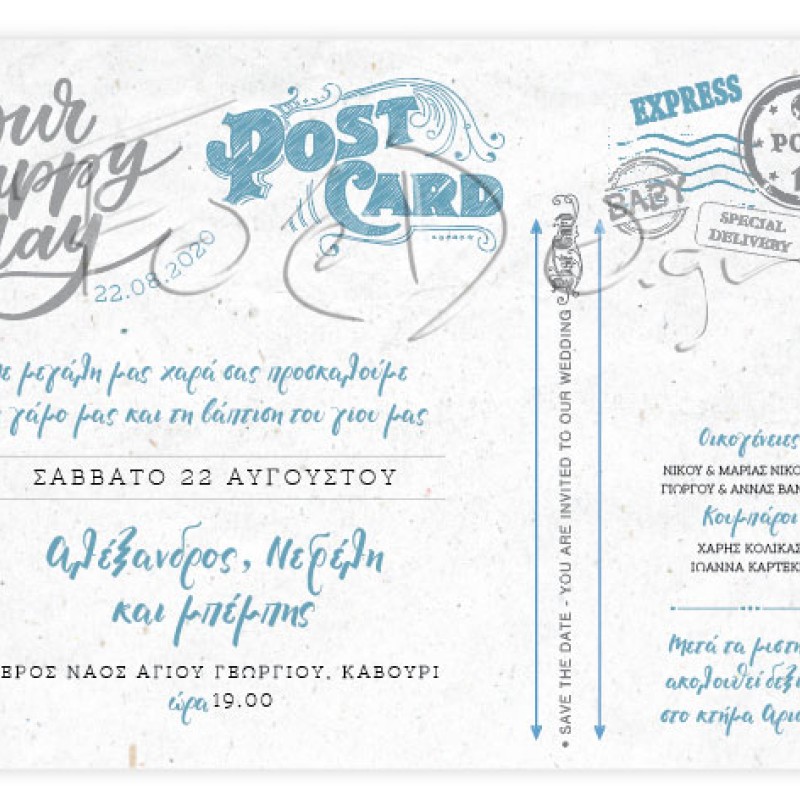 our
happy
day
22.08.2020
POST
CARD
EXPRESS
BABY
SPECIAL
DELIVERY
Post Card
• SAVE THE DATE - YOU ARE INVITED TO OUR WEDDING
ε μεγάλη μας χαρά σας προσκαλούμε
γάμο μας και τη βάπτιση του γιου μας
ΣΑΒΒΑΤΟ 22 ΑΥΓΟΥΣΤΟΥ
Αλέξανδρος, Νεφέλη
και μπέμπης
ΕΡΟΣ ΝΑΟΣ ΑΓΙΟΥ ΓΕΩΡΓΙΟΥ, ΚΑΒΟΥΡΙ
ώρα 19.00
Οικογένειες
ΝΙΚΟΥ & ΜΑΡΙΑΣ ΝΙΚΟ
ΓΙΩΡΓΟΥ & ΑΝΝΑΣ ΒΑΝ
Κουμπάροι
ΧΑΡΗΣ ΚΟΛΙΚΑΣ
ΙΩΑΝΝΑ ΚΑΡΤΕΚ
Μετά το μυστή
ακολουθεί δεξί
στο κτήμα Αρι